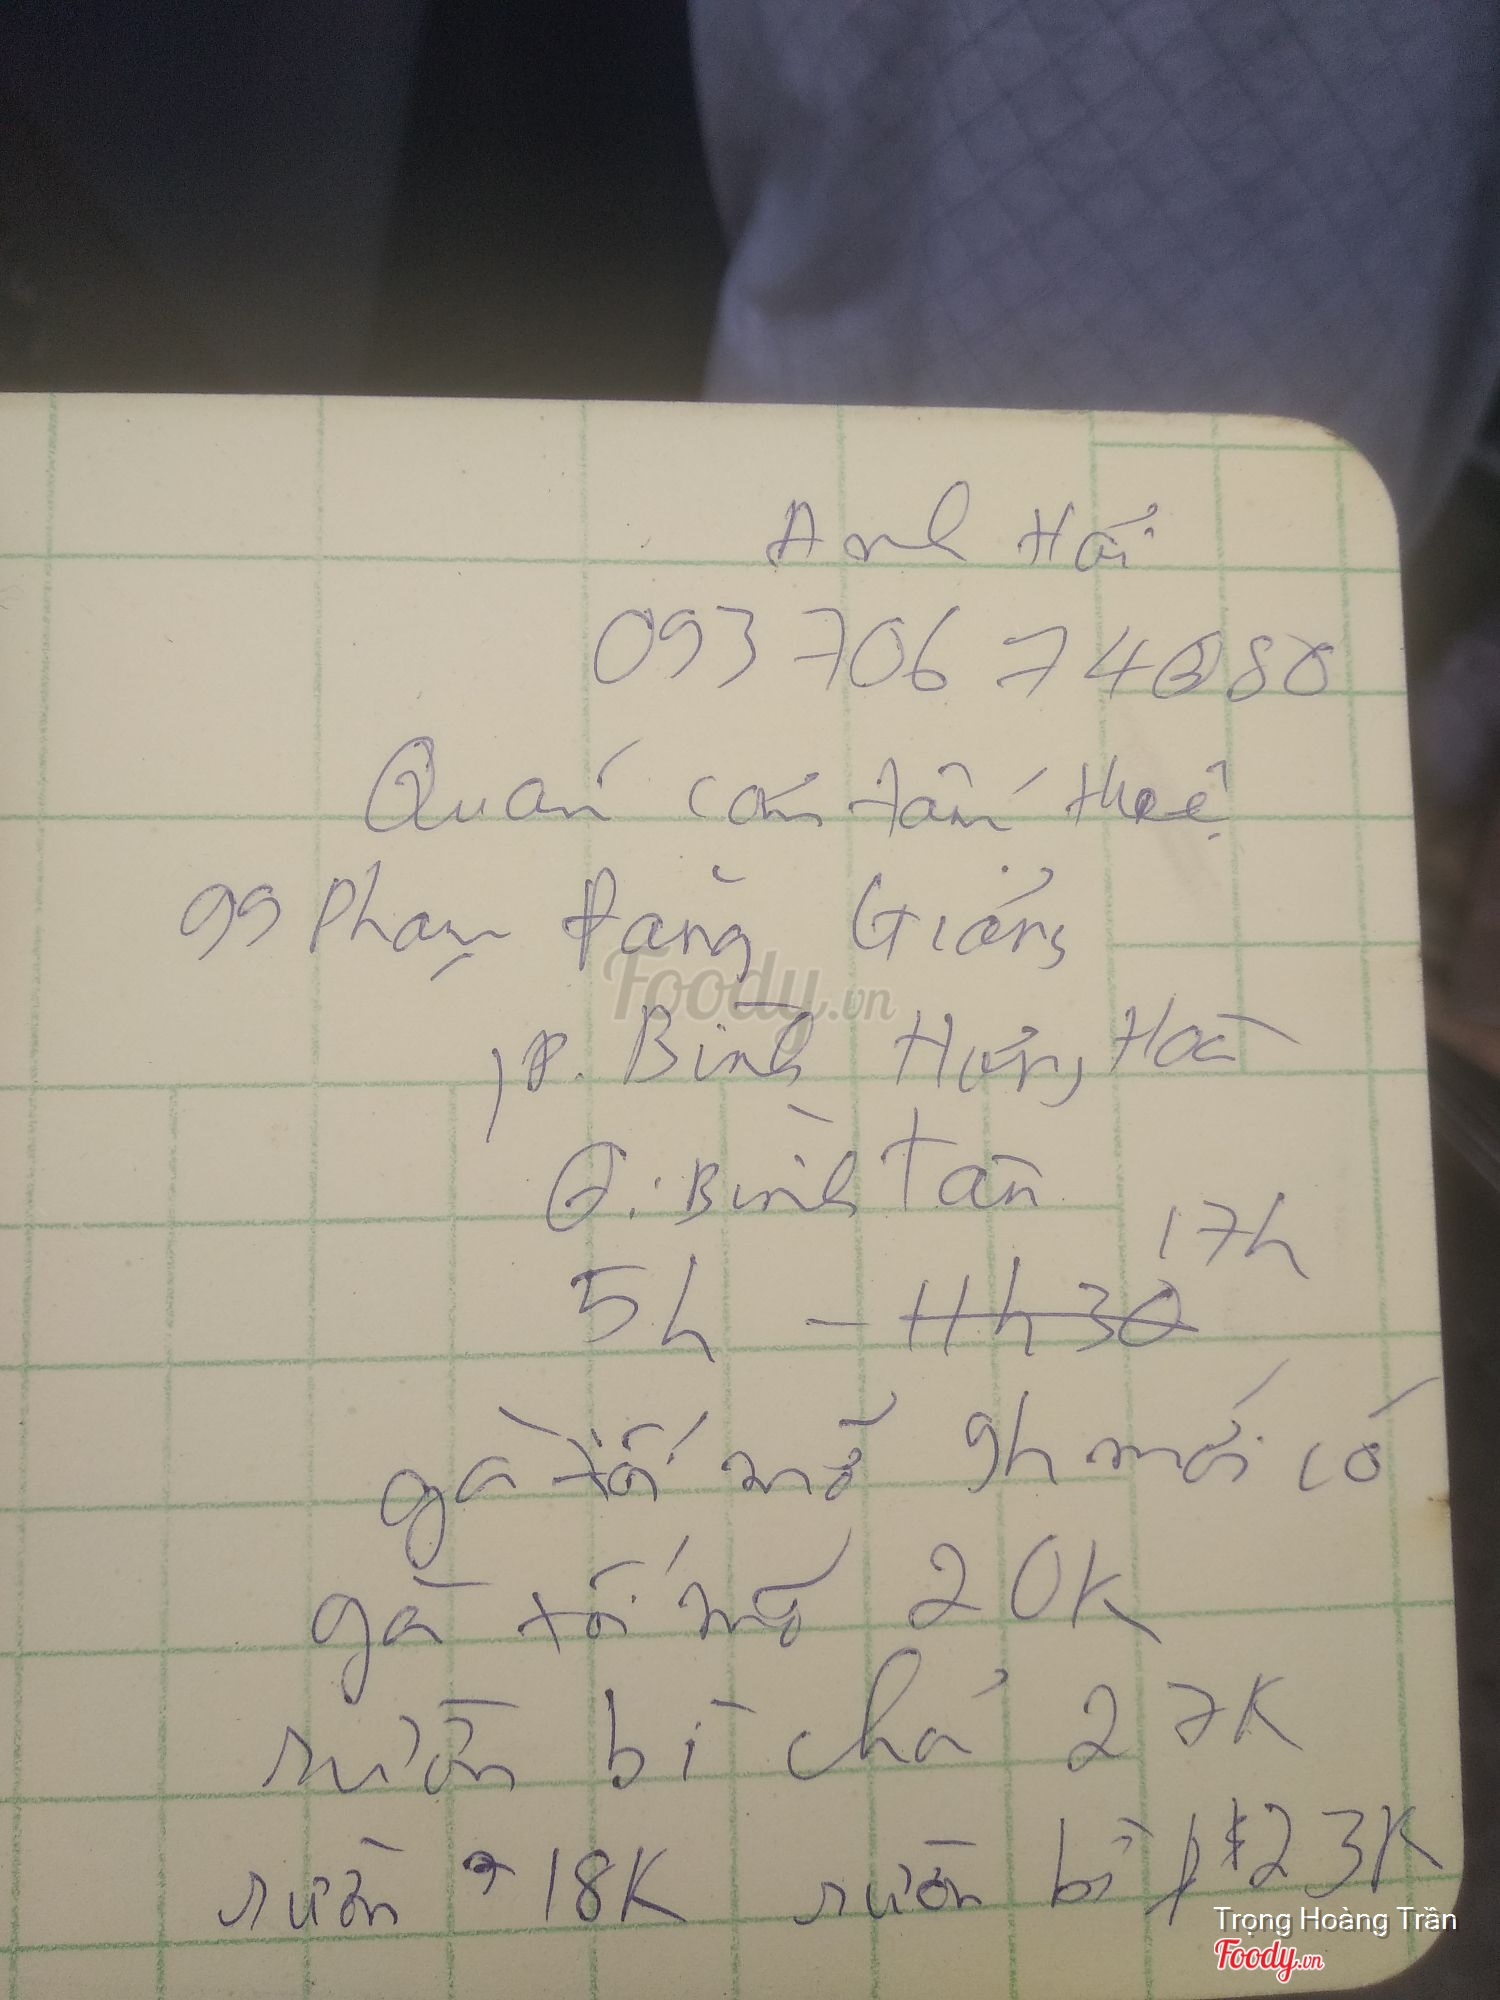 Anh Hải
093 706 74 80
Quán cơm tấm Huệ
99 Phạm Đăng Giảng
P. Bình Hưng Hoà
Q. Bình Tân
17h
5h - 11h30
gà tối mỡ 9h mới có
gà tối mỡ 20K
sườn bì chả 27K
sườn 18K sườn bì 23K
Foody.vn
Trọng Hoàng Trần
Foody.vn